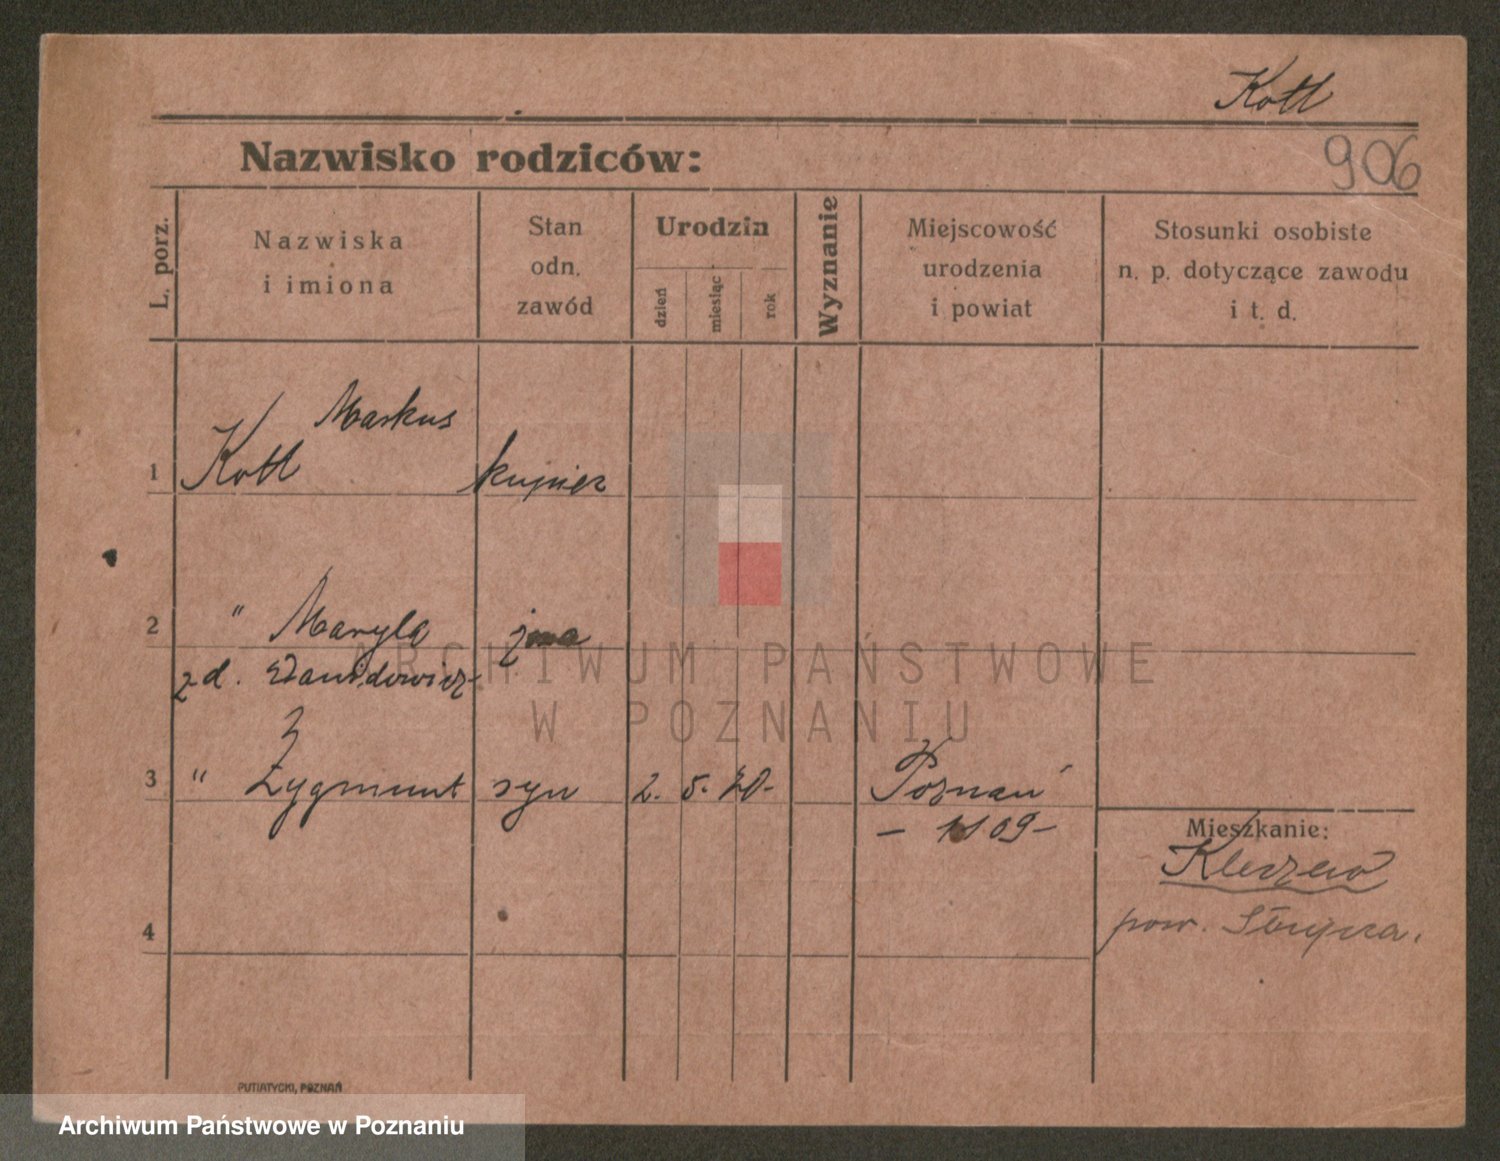 Kott
906
Nazwisko rodziców:
L. porz.
Nazwiska
i imiona
Stan
odn.
zawód
Urodzin
dzień
miesiąc
rok
Wyznanie
Miejscowość
urodzenia
i powiat
Stosunki osobiste
n. p. dotyczące zawodu
i t. d.
Markus
1 Kott kupiec
2 " Maryla żona
z d. Dawidowicz
3 " Zygmunt syn 2. 5. 20. Poznań
- 1109 -
Mieszkanie:
Kleczew
pow. Słupca.
4
ARCHIWUM PAŃSTWOWE
W POZNANIU
PUTIATYCKI, POZNAŃ
Archiwum Państwowe w Poznaniu